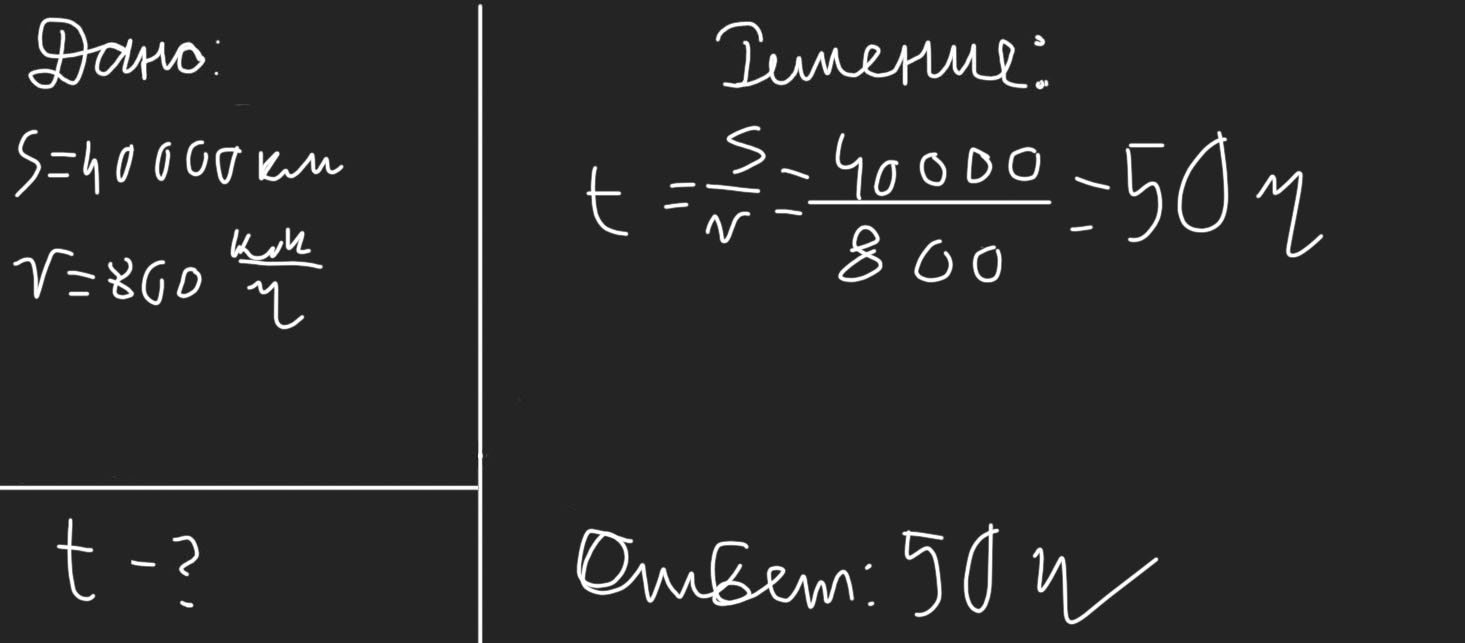 Дано:
S=40000км
v=800 км/ч
t-?
Решение:
t=S/v=40000/800=50ч
Ответ: 50ч